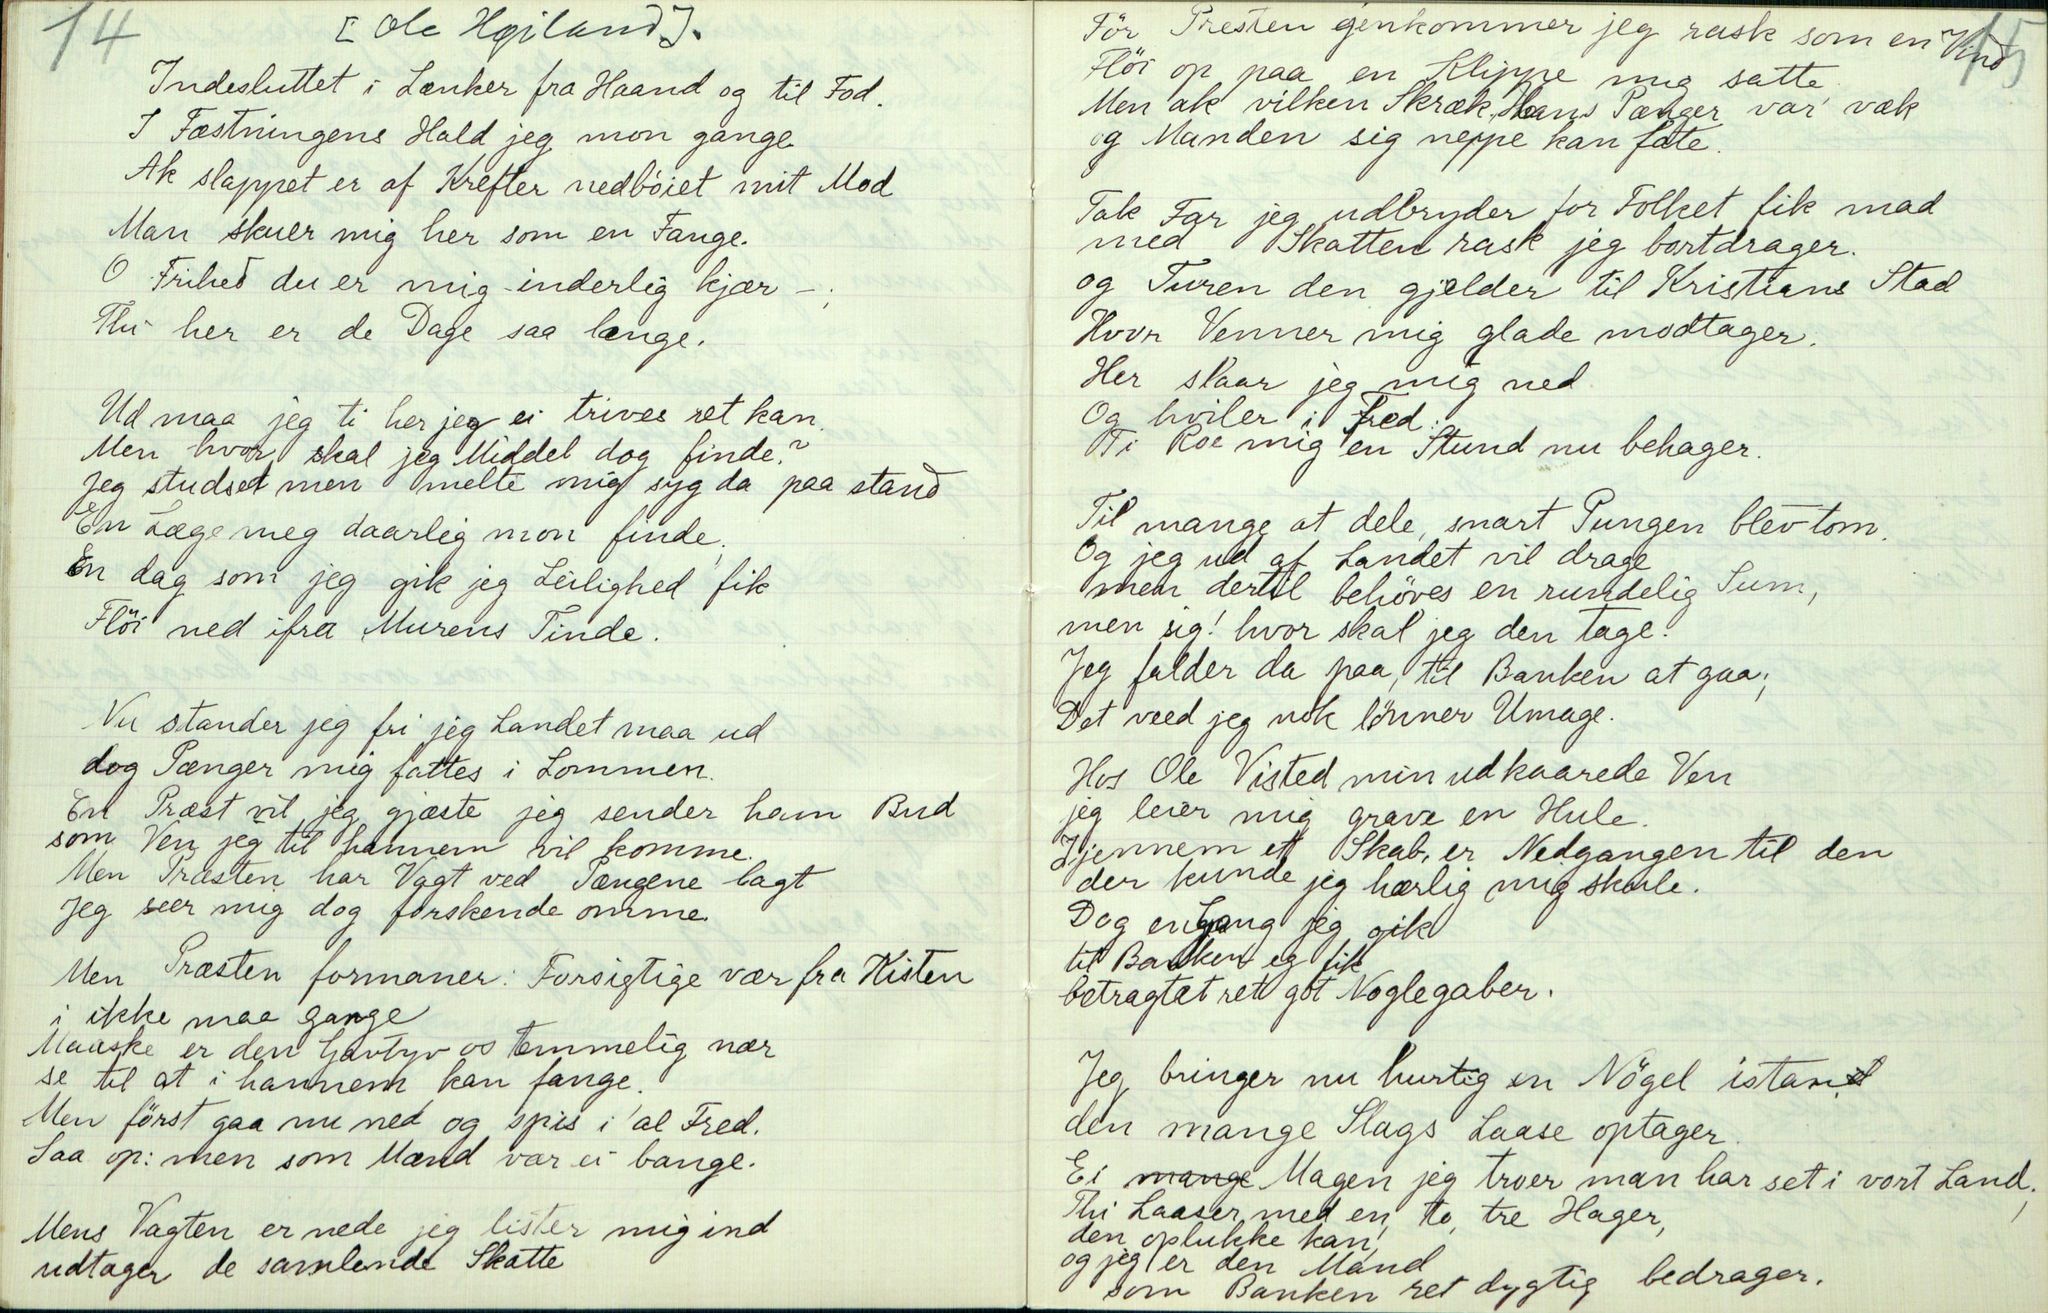 14
[Ole Høiland].
Indesluttet i Lænker fra Haand og til Fod.
I Fæstningens Hald jeg mon gange.
Ak slappet er af Krefter nedböiet mit Mod
Man skuer mig her som en Fange.
O Frihed du er mig inderlig kjær -;
Thi her er de Dage saa længe.
Ud maa jeg ti her jeg ei trives ret kan.
Men hvor skal jeg Middel dog finde?
Jeg studset men melte mig syg da paa stand
En Læge meg daarlig mon finde,
En dag som jeg gik jeg Leilighed fik
Flöi ned ifra Murens Tinde.
Nu stander jeg fri jeg Landet maa ud
dog Pænger mig fattes i Lommen.
En Præst vil jeg gjæste jeg sender ham Bud
som Ven jeg til hannem vil komme.
Men Præsten har Vagt ved Pængene lagt
Jeg seer mig dog forskende omme.
Men Præsten formaner: Forsigtige vær fra Kisten
i ikke maa gange
Maaske er den Gavtyv os temmelig nær
se til at i hannem kan fange.
Men först gaa nu ned og spis i al Fred.
Saa op: men som Mænd vær ei bange.
Mens Vagten er nede jeg lister mig ind
udtager de samlende Skatte
15
För Presten igenkommer jeg rask som en Vind
Flöi op paa en Klippe mig satte.
Men ak vilken Skræk, Hans Pænger var væk
og Manden sig neppe kan fate.
Tak Far jeg udbryder for Folket fik mad
med Skatten rask jeg bortdrager.
og Turen den gjælder til Kristians Stad
Hvor Venner mig glade modtager.
Her slaar jeg mig ned
Og hviler i Fred.
Ti Roe mig en Stund nu behager.
Til mange at dele, snart Pungen blev tom.
Og jeg ud af Landet vil drage
men dertil behöves en rundelig Sum,
men sig! hvor skal jeg den tage.
Jeg falder da paa, til Banken at gaa;
Det veed jeg nok lönner Umage.
Hos Ole Visted min udkaarede Ven
jeg leier mig grave en Hule.
Gjennem et Skab, er Nedgangen til den
der kunde jeg hærlig mig skule.
Dog engang jeg gik
til Banken eg fik
betragtet ret got Noglegaber.
Jeg bringer nu hurtig en Nögel istand
den mange Slags Laase optager.
Ei mange Magen jeg troer man har set i vort Land,
Thi Laaser med en, to, tre Hager,
den oplukke kan,
og jeg er den Mand
som Banken ret dygtig bedrager.